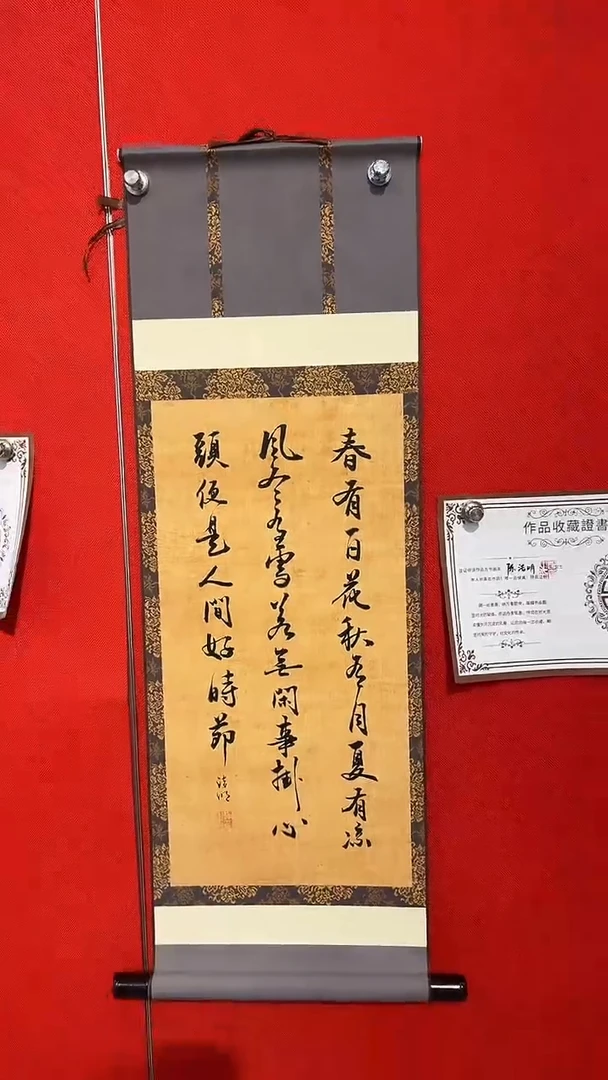 春有百花秋有月夏有涼
風冬有雪若無閑事掛心
頭便是人間好時節
浩明
作品收藏證書
陈浩明